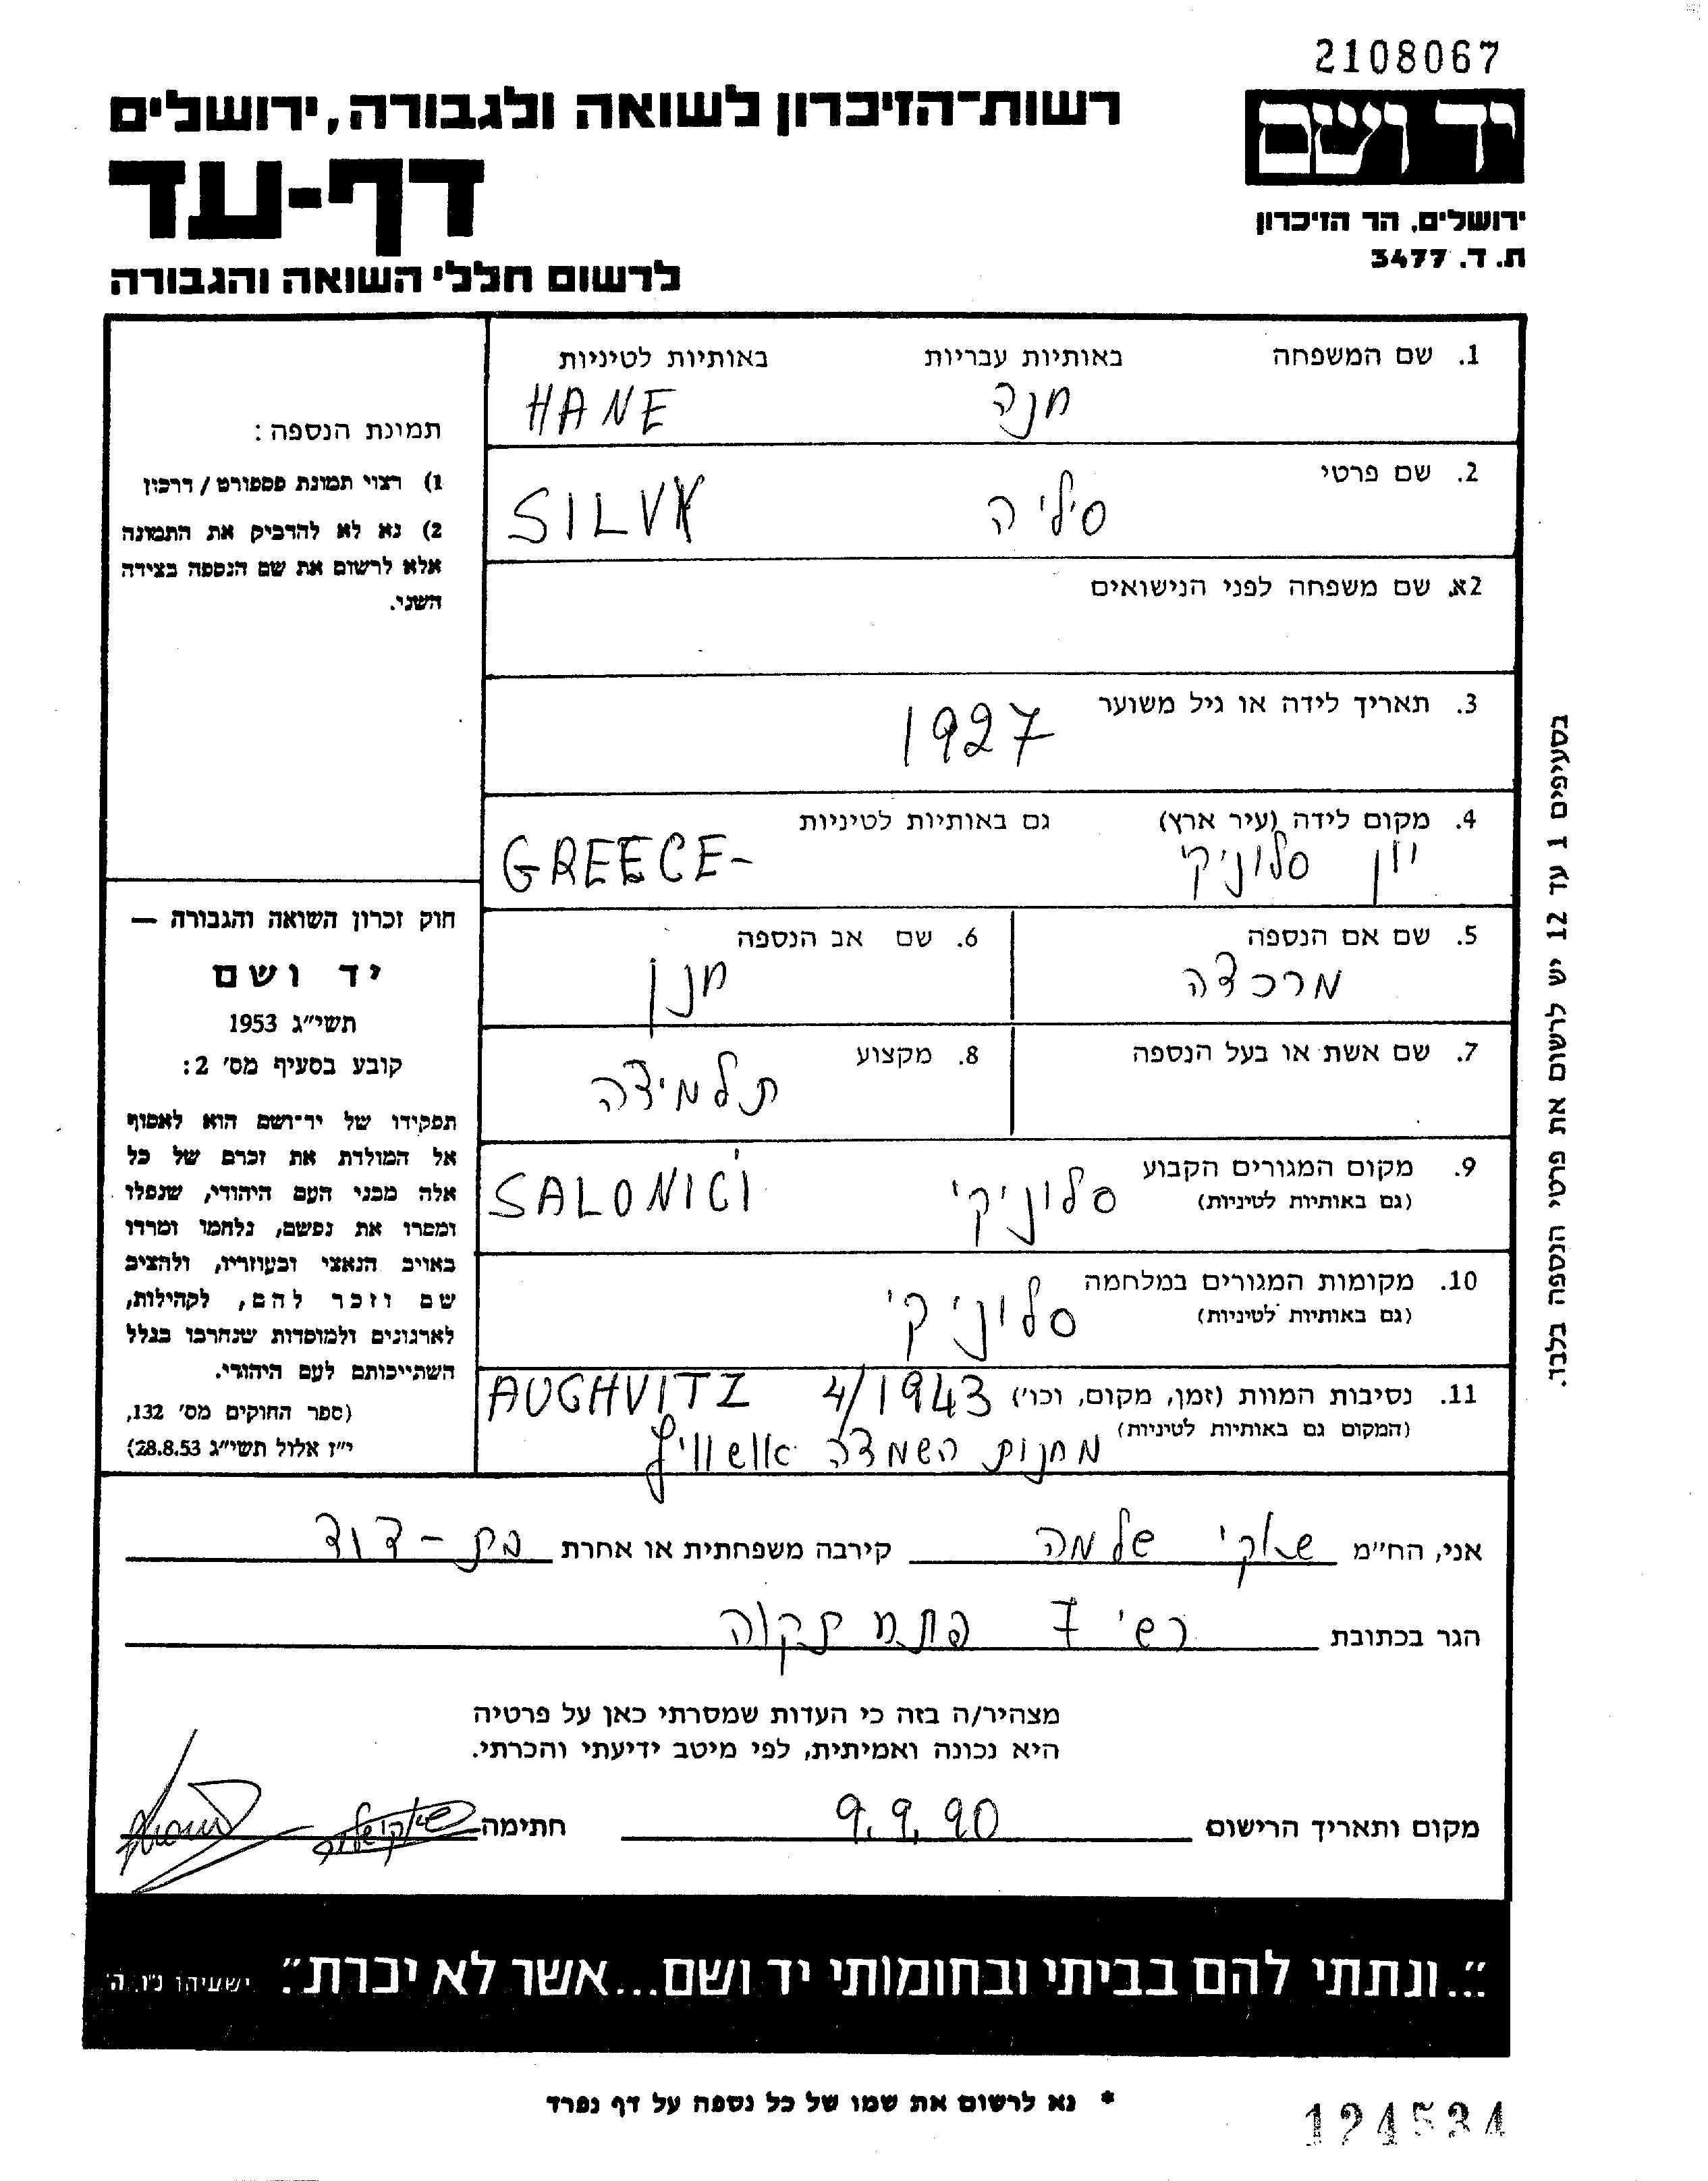 2108067
יד ושם
ירושלים, הר הזיכרון
ת. ד. 3477
רשות־הזיכרון לשואה ולגבורה, ירושלים
דף-עד
לרשום חללי השואה והגבורה
1. שם המשפחה באותיות עבריות באותיות לטיניות
חנה HANE
2. שם פרטי
סיליה SILVY
2א. שם משפחה לפני הנישואים
3. תאריך לידה או גיל משוער
1927
4. מקום לידה (עיר ארץ) גם באותיות לטיניות
יוון סלוניקי GREECE-
5. שם אם הנספה 6. שם אב הנספה
מרכדה חנן
7. שם אשת או בעל הנספה 8. מקצוע
תלמידה
9. מקום המגורים הקבוע
(גם באותיות לטיניות)
סלוניקי SALONICI
10. מקומות המגורים במלחמה
(גם באותיות לטיניות)
סלוניקי
11. נסיבות המוות (זמן, מקום, וכו') 4/1943 AUGHVITZ
(המקום גם באותיות לטיניות)
מחנות השמדה אושוויץ
תמונת הנספה:
1) רצוי תמונת פספורט / דרכון
2) נא לא להדביק את התמונה
אלא לרשום את שם הנספה בצידה
השני.
חוק זכרון השואה והגבורה —
יד ושם
תשי״ג 1953
קובע בסעיף מס׳ 2:
תפקידו של יד־ושם הוא לאסוף
אל המולדת את זכרם של כל
אלה מבני העם היהודי, שנפלו
ומסרו את נפשם, נלחמו ומרדו
באויב הנאצי ובעוזריו, ולהציב
שם וזכר להם, לקהילות,
לארגונים ולמוסדות שנחרבו בגלל
השתייכותם לעם היהודי.
(ספר החוקים מס׳ 132,
י״ז אלול תשי״ג 28.8.53)
בסעיפים 1 עד 12 יש לרשום את פרטי הנספה בלבד.
אני, הח״מ שאקי שלמה קירבה משפחתית או אחרת בת-דוד
הגר בכתובת רש׳י 7 פתח תקוה
מצהיר/ה בזה כי העדות שמסרתי כאן על פרטיה
היא נכונה ואמיתית, לפי מיטב ידיעתי והכרתי.
מקום ותאריך הרישום 9.9.90 חתימה
״...ונתתי להם בביתי ובחומותי יד ושם...אשר לא יכרת״. ישעיהו נ״ו. ה׳
* נא לרשום את שמו של כל נספה על דף נפרד
124534